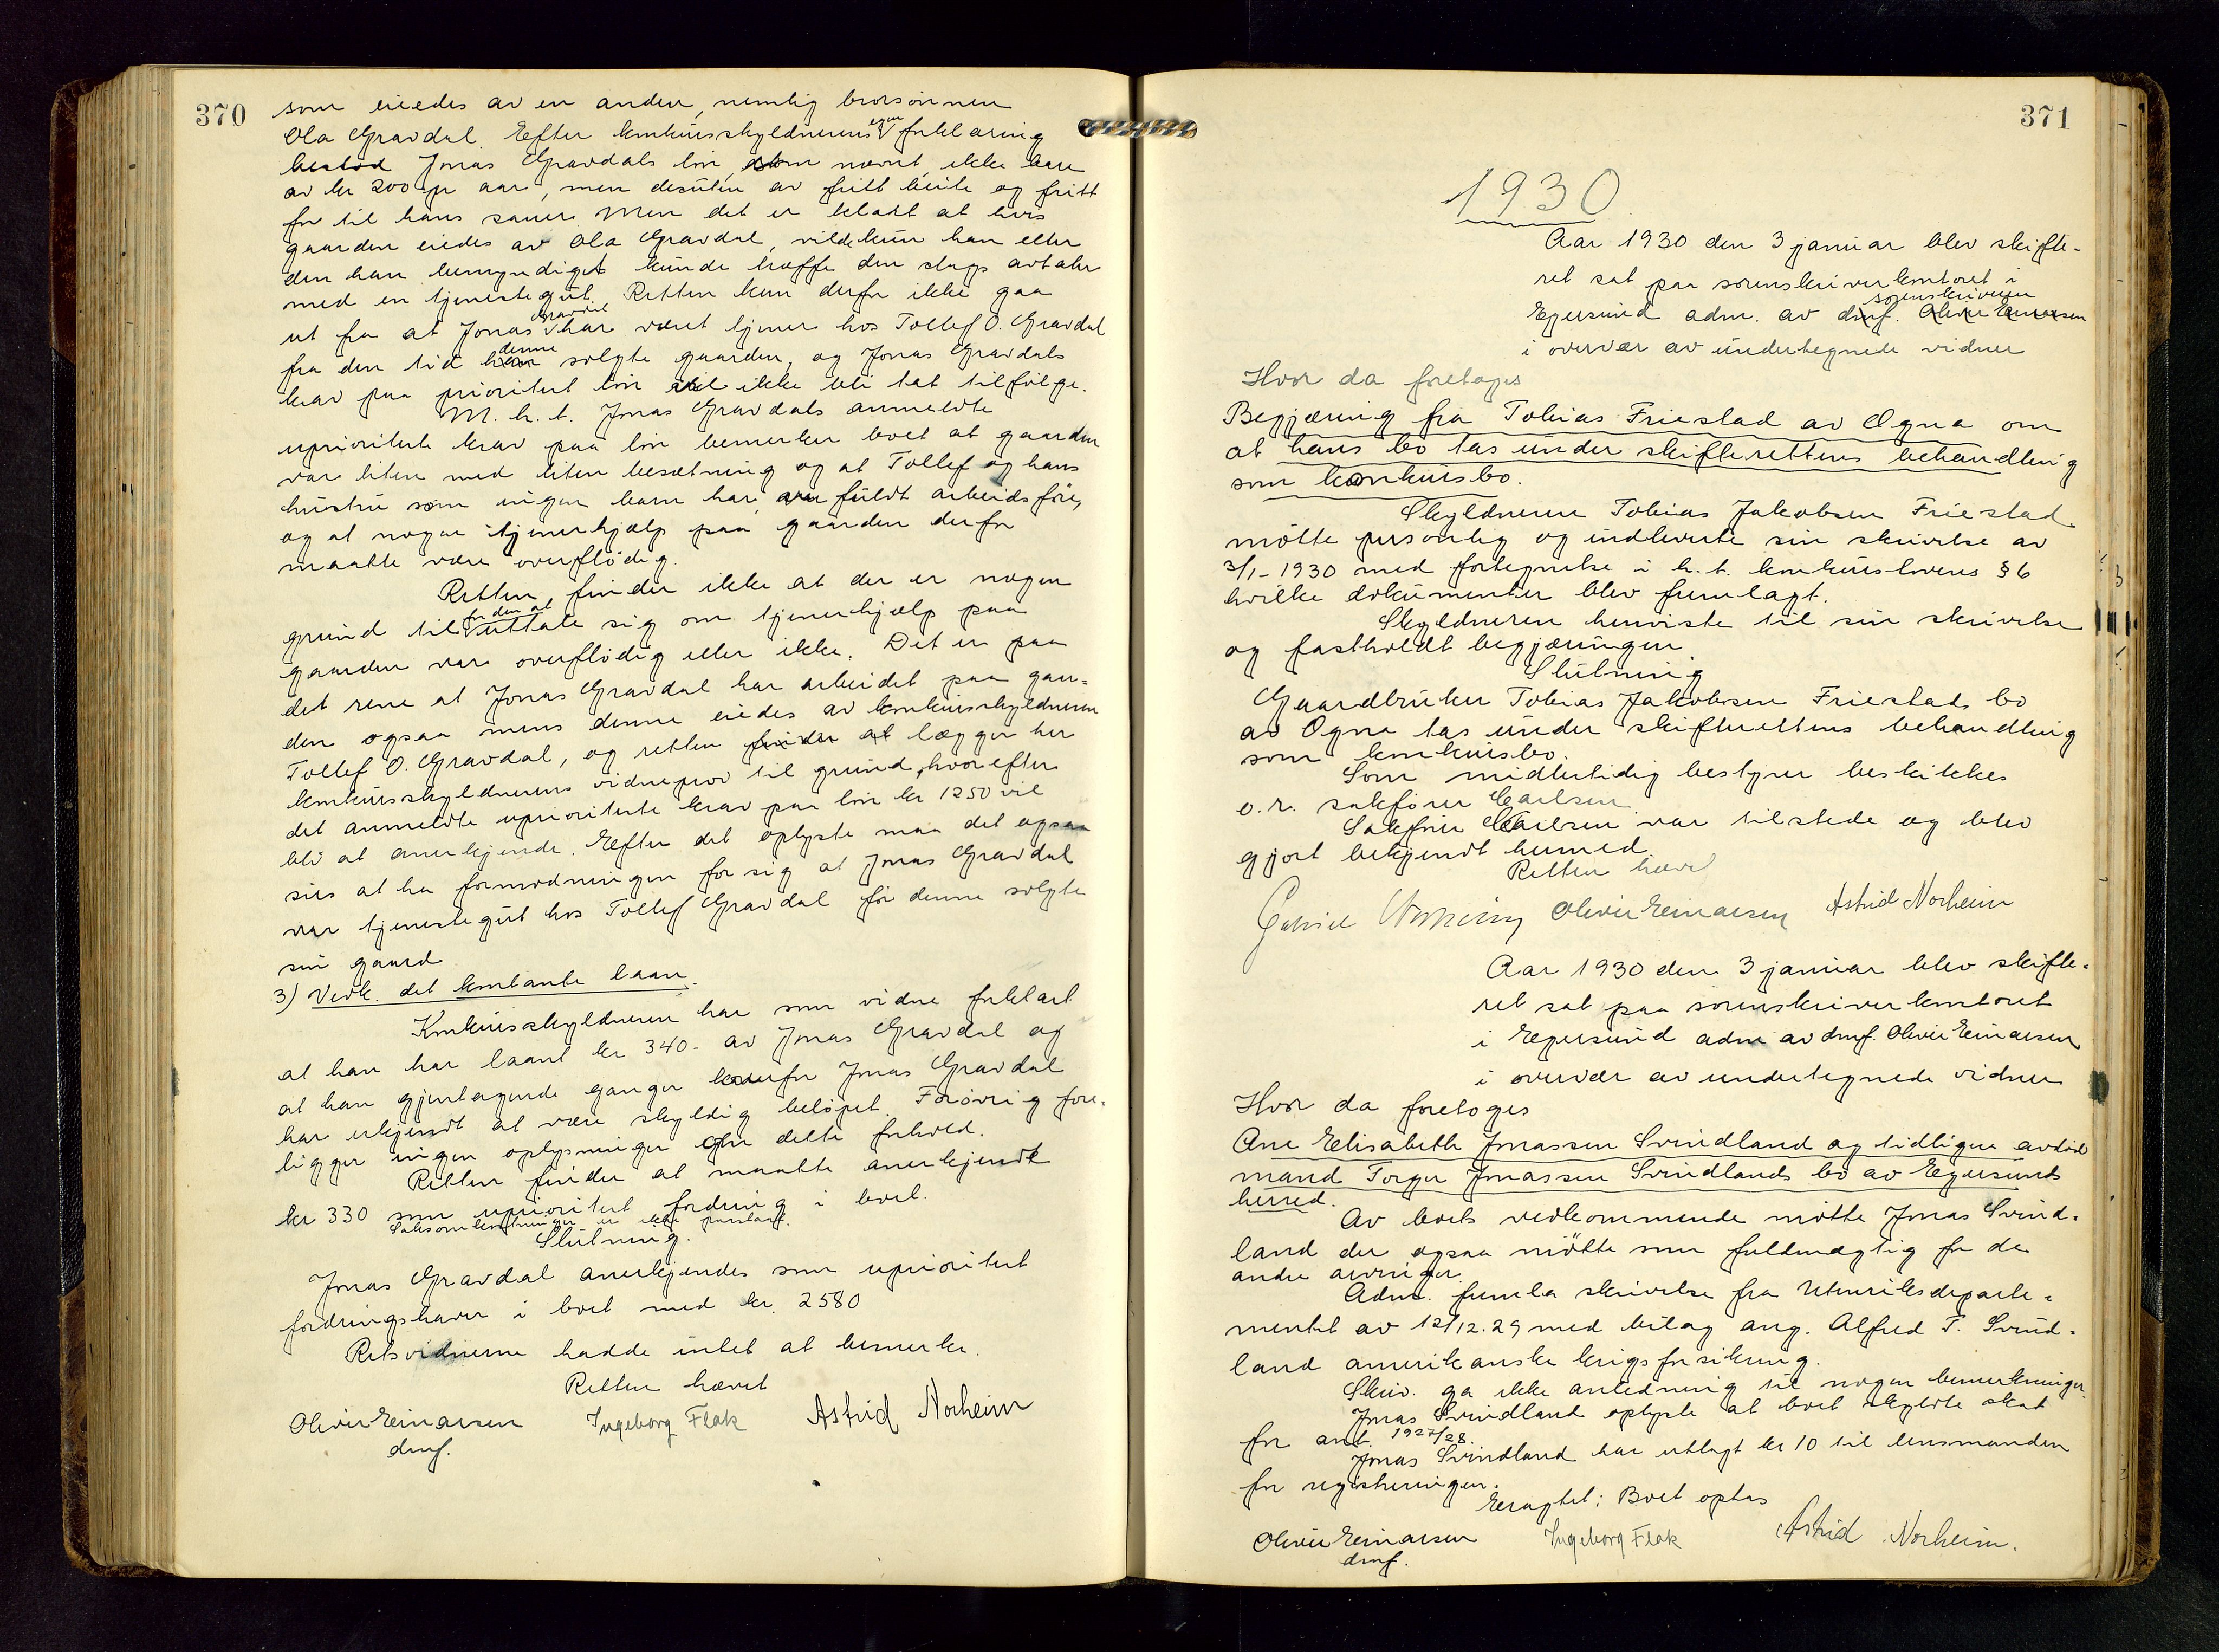 370
som eiedes av en anden, nemlig brorsønnen
Ola Gravdal. Efter konkursskyldnerens egen forklaring
bestod Jonas Gravdals løn, som nævnt, ikke bare
av kr 200 pr aar, men desuten av fritt beite og fritt
for til hans sauer. Men det er klart at hvis
gaarden eiedes av Ola Gravdal, vilde kun han eller
den han bemyndiget kunde træffe den slags avtaler
med en tjenestegut. Retten kan derfor ikke gaa
ut fra at Jonas Gravdal har været tjener hos Tollef O. Gravdal
fra den tid denne solgte gaarden, og Jonas Gravdals
krav paa prioritert løn vil ikke bli tat tilfølge.
M. h. t. Jonas Gravdals anmeldte
uprioriterte krav paa løn bemerker boet at gaarden
var liten med liten besætning og at Tollef og hans
hustru som ingen barn har, var fuldt arbeidsføre,
og at nogen tjenerhjælp paa gaarden derfor
maatte være overflødig.
Retten finder ikke at der er nogen
grund til for den at uttale sig om tjenerhjælp paa
gaarden var overflødig eller ikke. Det er paa
det rene at Jonas Gravdal har arbeidet paa gaar-
den ogsaa mens denne eiedes av konkursskyldneren
Tollef O. Gravdal, og retten finder at lægger her
konkursskyldnerens vidneprov til grund, hvorefter
det anmeldte uprioriterte krav paa løn kr 1250 vil
bli at anerkjende. Efter det oplyste maa det ogsaa
sies at ha formodningen for sig at Jonas Gravdal
var tjenestegut hos Tollef Gravdal før denne solgte
sin gaard.
3) Vedk. det kontante laan.
Konkursskyldneren har som vidne forklart
at han har laant kr 340.- av Jonas Gravdal og
at han gjentagende ganger overfor Jonas Gravdal
har erkjendt at være skyldig beløpet. Forøvrig fore-
ligger ingen oplysninger om dette forhold.
Retten finder at maatte anerkjende
kr 330 som uprioritert fordring i boet.
Saksomkostninger er ikke paastaat.
Slutning.
Jonas Gravdal anerkjendes som uprioritert
fordringshaver i boet med kr. 2580
Retsvidnerne hadde intet at bemerke.
Retten hævet
Olivier Einarsen Ingeborg Flak Astrid Norheim
dmf.
371
1930
Aar 1930 den 3 januar blev skifte-
ret sat paa sorenskriverkontoret i
Egersund adm. av sorenskriveren dmf. Olivier Einarsen
i overvær av undertegnede vidner
Hvor da foretoges
Begjæring fra Tobias Friestad av Ogna om
at hans bo tas under skifterettens behandling
som konkursbo.
Skyldneren Tobias Jakobsen Friestad
møtte personlig og indleverte sin skrivelse av
3/1-1930 med fortegnelse i h. t. konkurslovens § 6
hvilke dokumenter blev fremlagt.
Skyldneren henviste til sin skrivelse
og fastholdt begjæringen.
Slutning
Gaardbruker Tobias Jakobsen Friestads bo
av Ogna tas under skifterettens behandling
som konkursbo.
Som midlertidig bestyrer beskikkes
o.r. sakfører Carlsen.
Sakfører Carlsen var tilstede og blev
gjort bekjendt hermed.
Retten hævet
Gabriel Olivier Einarsen Astrid Norheim
Aar 1930 den 3 januar blev skifte-
ret sat paa sorenskriverkontoret
i Egersund adm av dmf. Olivier Einarsen
i overvær av undertegnede vidner
Hvor da foretoges
Ane Elisabeth Jonassen Svindland og tidligere avdød
mand Torger Jonassen Svindlands bo av Egersunds
herred.
Av boets vedkommende møtte Jonas Svind-
land der ogsaa møtte som fuldmægtig for de
andre arvinger.
Adm. fremla skrivelse fra Utenriksdeparte-
mentet av 12/12.29 med bilag ang. Alfred T. Svind-
land amerikanske krigsforsikring.
Skriv. ga ikke anledning til nogen bemerkninger.
Jonas Svindland oplyste at boet skyldte skat
for aar. 1927/28.
Jonas Svindland har utlagt kr 10 til lensmanden
for registreringen.
Eragtet: Boet optas
Olivier Einarsen Ingeborg Flak Astrid Norheim.
dmf.